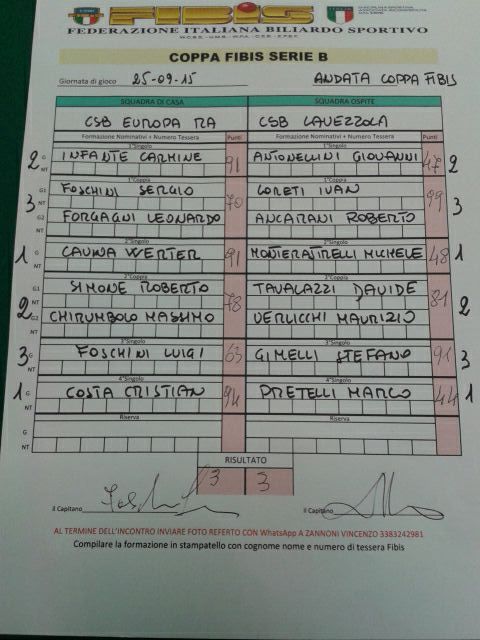 FIBIS
FEDERAZIONE ITALIANA BILIARDO SPORTIVO
COPPA FIBIS SERIE B
Giornata di gioco 25-09-15 ANDATA COPPA FIBIS
SQUADRA DI CASA SQUADRA OSPITE
CSB EUROPA RA CSB LAVEZZOLA
Formazione Nominativi + Numero Tessera Punti Formazione Nominativi + Numero Tessera Punti
1°Singolo 1°Singolo
2 G INFANTE CARMINE 91 ANTONELLINI GIOVANNI 47 2
NT
1°Coppia 1°Coppia
3 G1 FOSCHINI SERGIO 70 LORETI IVAN 99 3
NT
G2 FORGAGNI LEONARDO ANCARANI ROBERTO
NT
2°Singolo 2°Singolo
1 G CAVINA WERTER 91 MICHELE 48 1
NT
2°Coppia 2°Coppia
G1 SIMONE ROBERTO 78 TAVALAZZI DAVIDE 81
NT
2 G2 CHIRUMBOLO MASSIMO VERLICCHI MAURIZIO 2
NT
3°Singolo 3°Singolo
3 G FOSCHINI LUIGI 63 GIMELLI STEFANO 91 3
NT
4°Singolo 4°Singolo
1 G COSTA CRISTIAN 94 PRETELLI MARCO 44 1
NT
Riserva Riserva
G
NT
RISULTATO
3 3
Il Capitano Il Capitano
AL TERMINE DELL'INCONTRO INVIARE FOTO REFERTO CON WhatsApp A ZANNONI VINCENZO 3383242981
Compilare la formazione in stampatello con cognome nome e numero di tessera Fibis